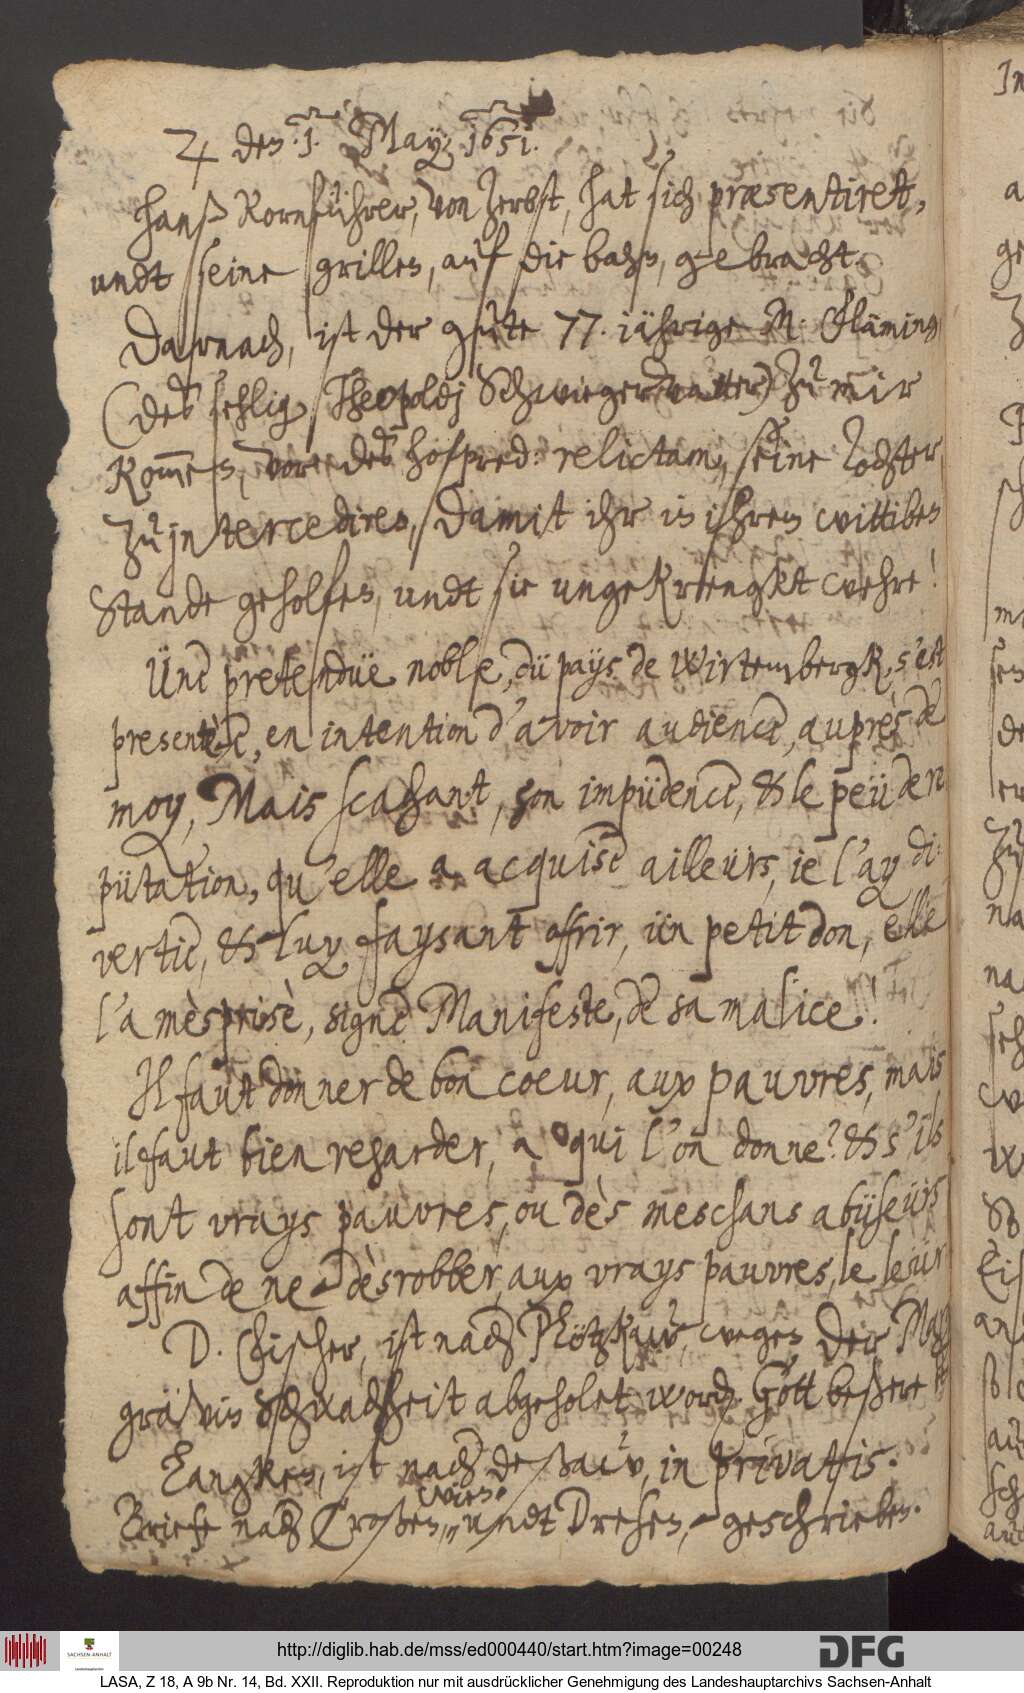 ♃ den: 1. May: 1651.
Hanß Kornführer, von Zerbst, hat sich præsentiret,
undt seine grillen, auf die bahn, gebracht.
Darnach, ist der gute 77. iährige M. Fläming
(des sehlig: Theopoldj Schwiegervatter) zu mir
kom̄en, vor des hofpred: relictam, seine Tochter
zu jntercediren, damit ihr in ihrem wittiben
Stande geholfen, undt sie ungekrengkt wehre!
Üne pretendüe noblesse, dü païs de Wirtembergk, s'est
presentèe, en intention d'avoir audience, auprès de
moy, Mais scachant, son impüdence, & le peü de re
pütation, qu'elle a acquise ailleürs, ie l'ay di:
vertie, & luy faysant offrir, ün petit don, elle
l'a mèsprisè, signe Manifeste, de sa malice!
Il faut donner de bon coeur, aux pauvres, mais
il faut bien regarder, a qui l'on donne? & s'ils
sont vrays pauvres, ou dès meschans abüseürs
affin de ne dèsrobber, aux vrays pauvres, le leur
D. Fischer, ist nach Plötzkaw, wegen der Mar
gräffin Schwachheit abgeholet word. Gott beßere es
Langken, ist nach Deßaw, in privatis.
Briefe nach Croßen, Wien, undt Dresen, geschrieben.
In
http://diglib.hab.de/mss/ed000440/start.htm?image=00248
SACHSEN-ANHALT
Landeshauptarchiv
DFG
LASA, Z 18, A 9b Nr. 14, Bd. XXII. Reproduktion nur mit ausdrücklicher Genehmigung des Landeshauptarchivs Sachsen-Anhalt